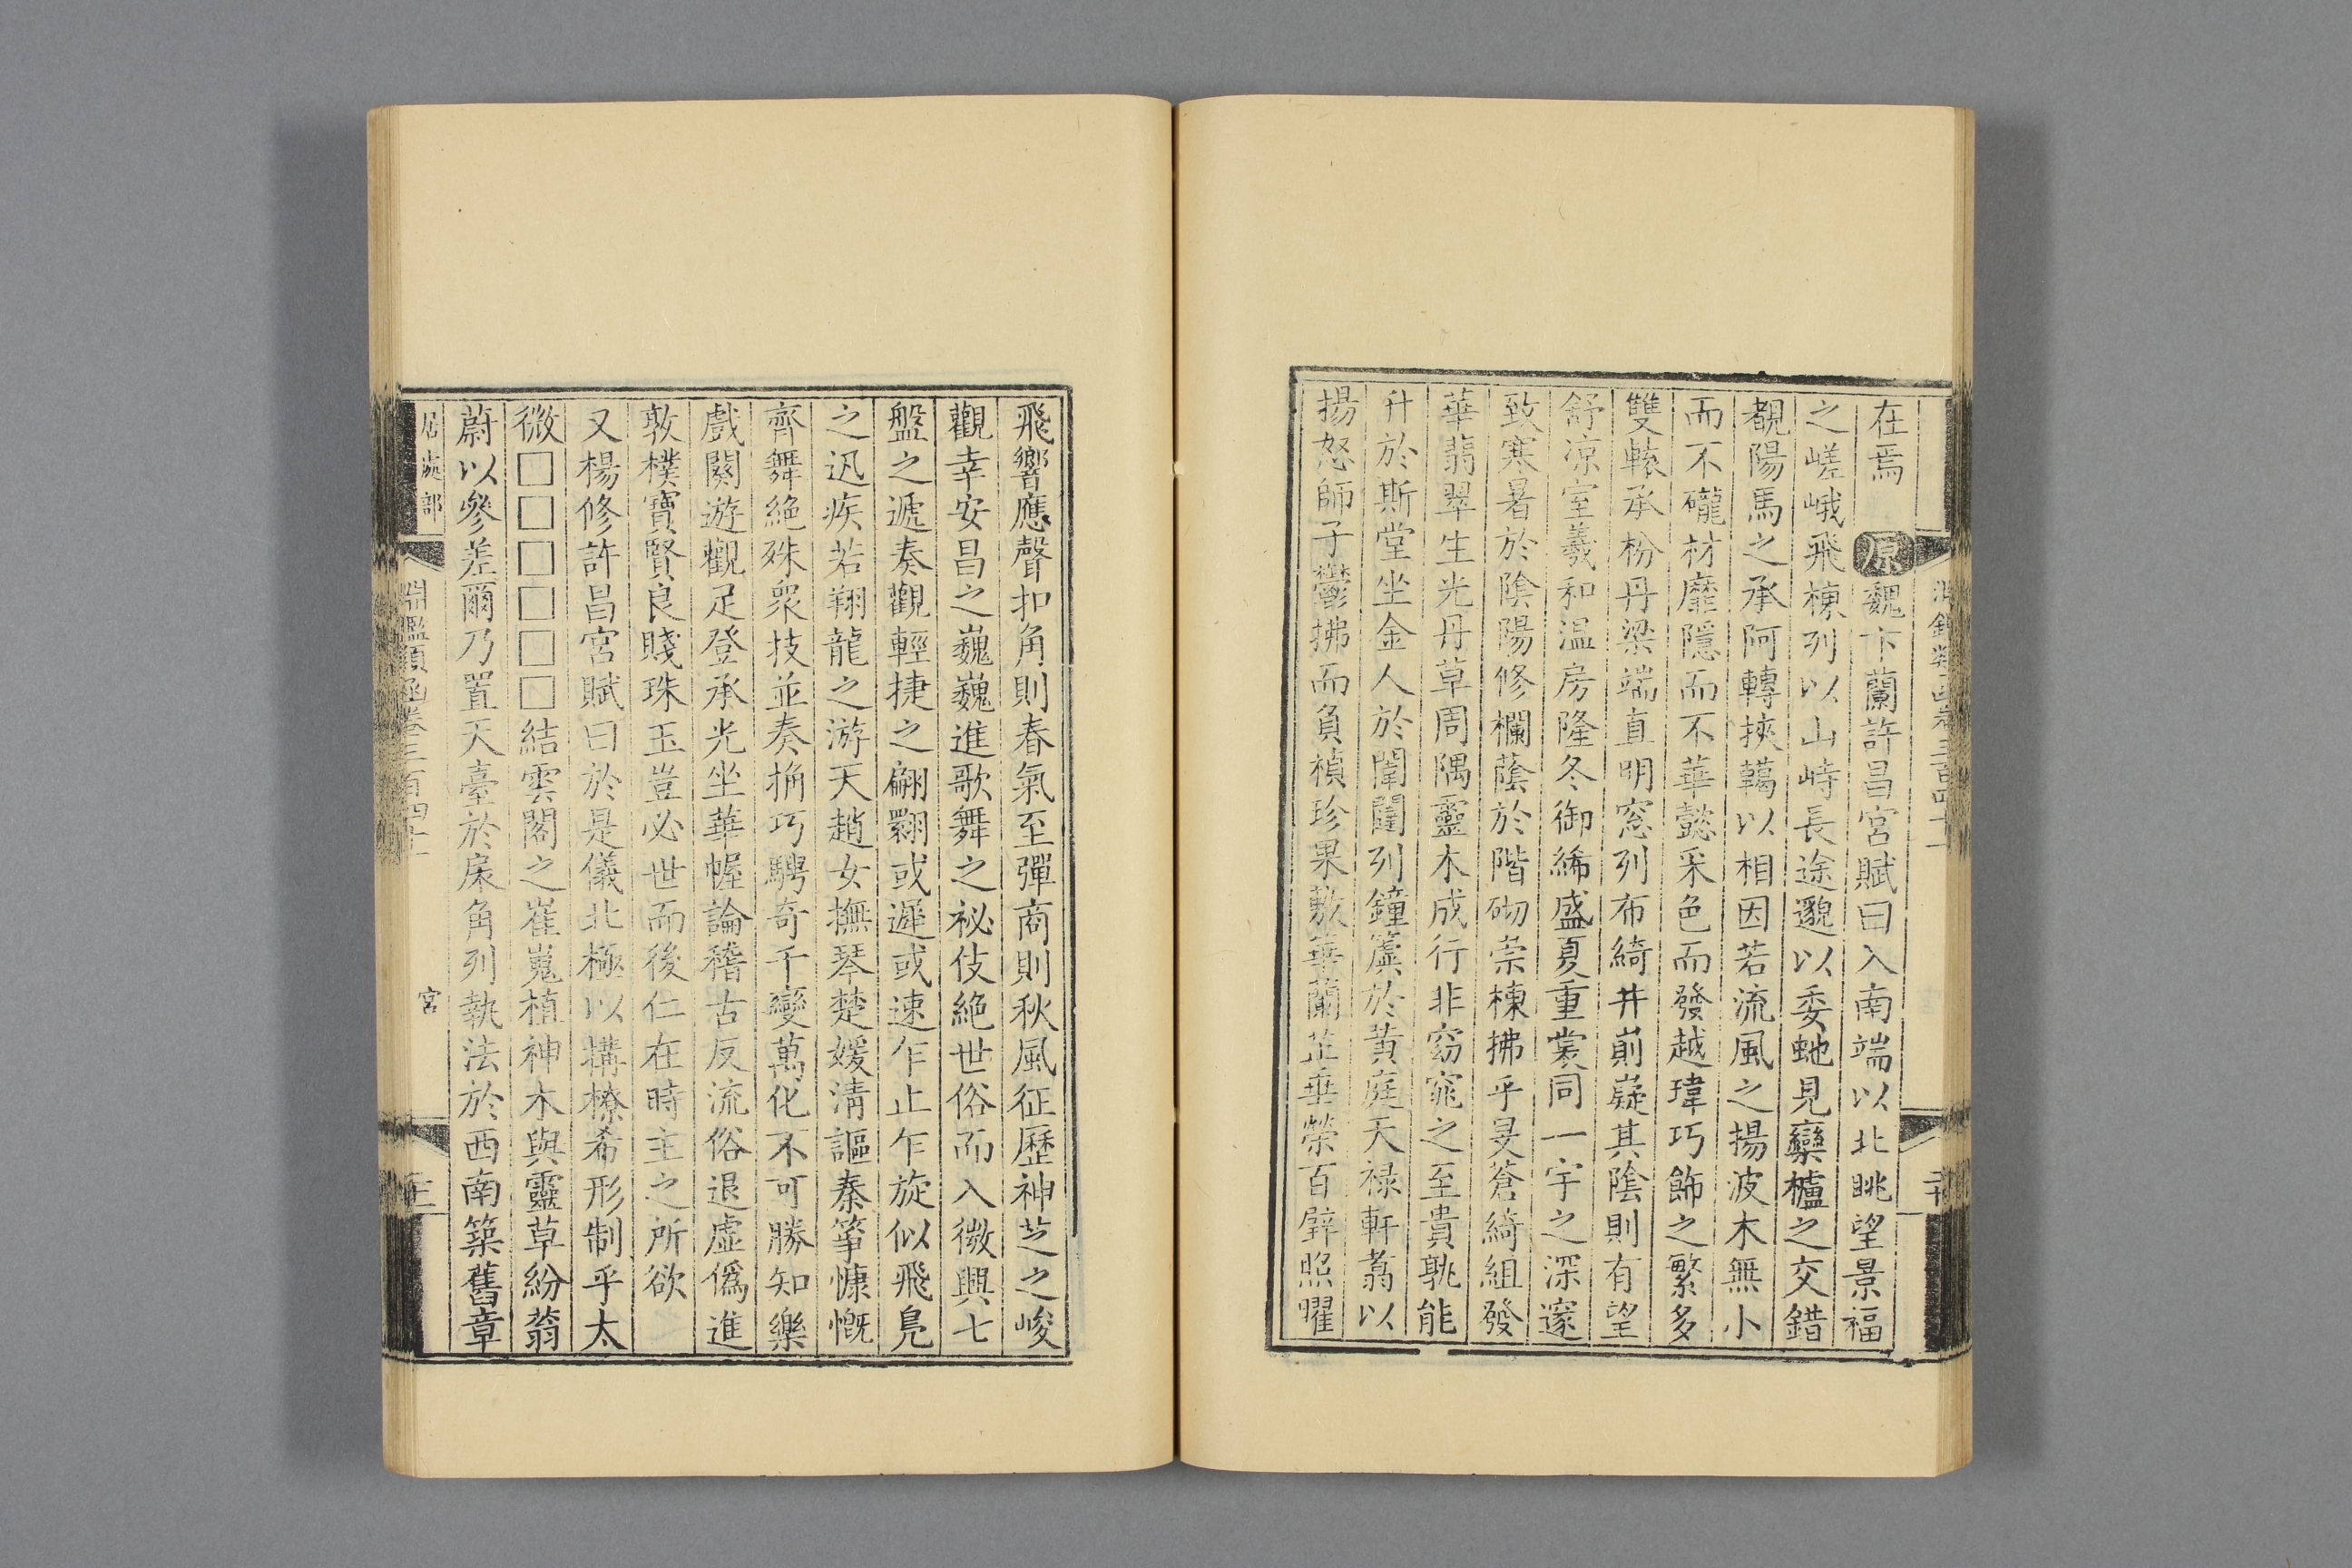 在焉 原 魏卞蘭許昌宮賦曰入南端以北眺望景福
之嵯峨飛棟列以山峙長途邈以委虵見欒櫨之交錯
覩陽馬之承阿轉挾轕以相因若流風之揚波木無小
而不礲材靡隱而不華懿采色而發越瑋巧飾之繁多
雙轅承枌丹梁端直明窓列布綺井崱嶷其陰則有望
舒凉室羲和温房隆冬御絺盛夏重裳同一宇之深邃
致寒暑於陰陽修欄蔭於階砌崇棟拂乎旻蒼綺組發
華翡翠生光丹草周隅靈木成行非窈窕之至貴孰能
升於斯堂坐金人於闈闥列鐘簴於黃庭天禄軒翥以
揚怒師子鬱拂而負楨珍果敷華蘭芷垂榮百辟照曜
飛響應聲扣角則春氣至彈商則秋風征歷神芝之峻
觀幸安昌之巍巍進歌舞之祕伎絶世俗而入微興七
盤之遞奏觀輕捷之翩翾或遲或速乍止乍旋似飛鳬
之迅疾若翔龍之游天趙女撫琴楚媛清謳秦筝慷慨
齊舞絶殊衆技並奏捔巧騁奇千變萬化不可勝知樂
戲闋遊觀足登承光坐華幄論稽古反流俗退虛僞進
敦樸寶賢良賤珠玉豈必世而後仁在時主之所欲
又楊修許昌宮賦曰於是儀北極以搆橑希形制乎太
微□□□□□□結雲閣之崔嵬植神木與靈草紛蓊
蔚以參差爾乃置天臺於扆角列執法於西南築舊章
居處部
淵鑑類函卷三百四十一
宮